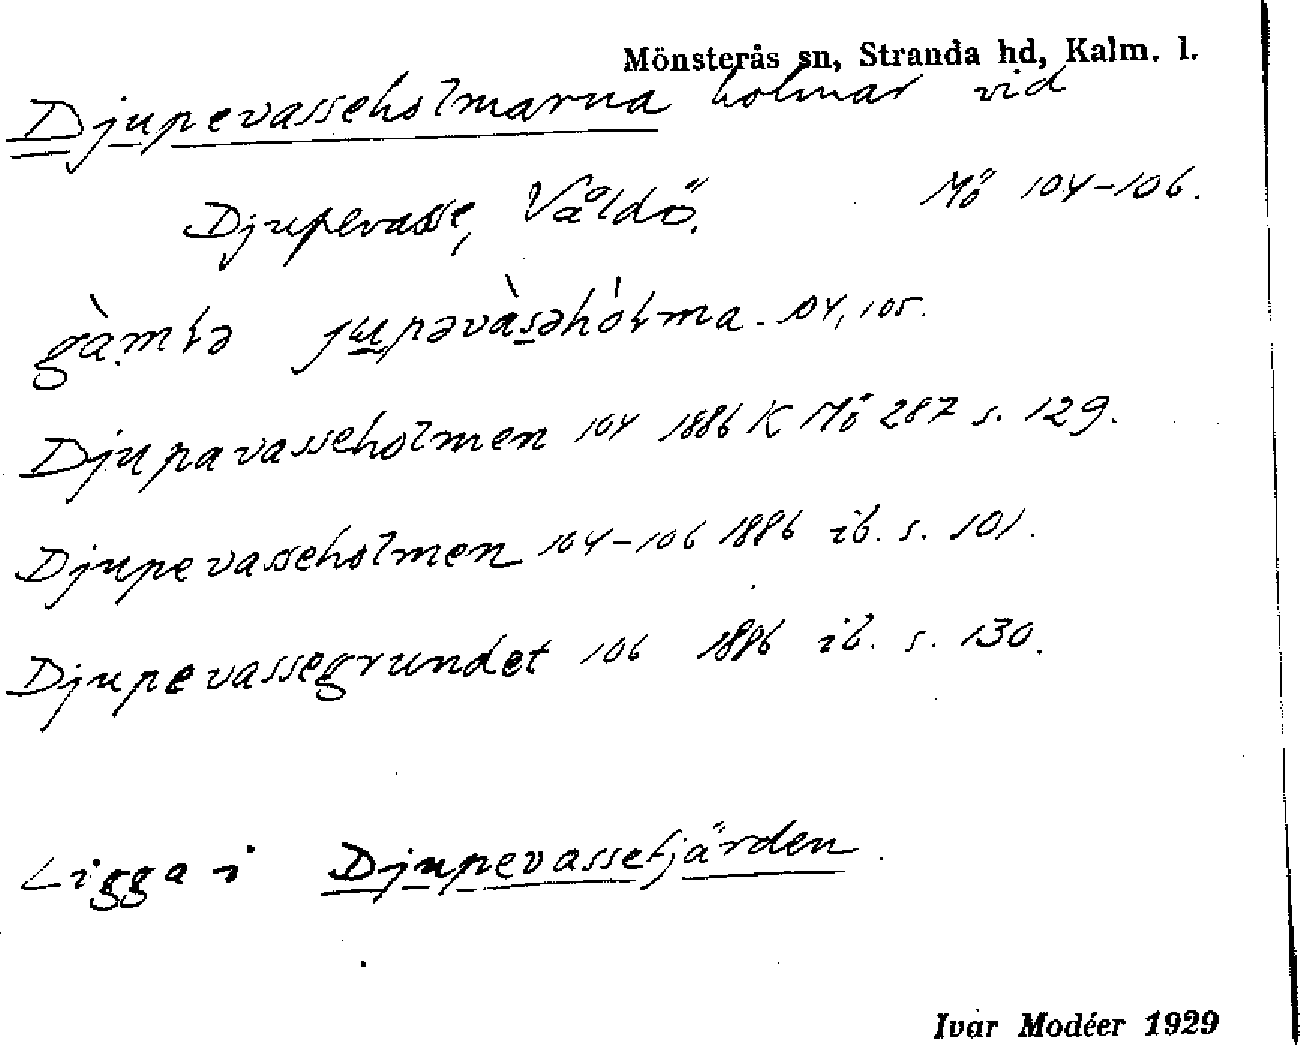 Mönsterås sn, Stranda hd, Kalm. l.
Djupevasseholmarna holmar vid
Djupevasse, Våldö. Mö 104-106.
gàmɫə jupəvàsəhòɫma. 104, 105.
Djupavasseholmen 104 1886 K Mö 287 s. 129.
Djupevasseholmen 104-106 1886 ib. s. 101.
Djupevassegrundet 106 1886 ib. s. 130.
Ligga i Djupevassefjärden.
Ivar Modéer 1929